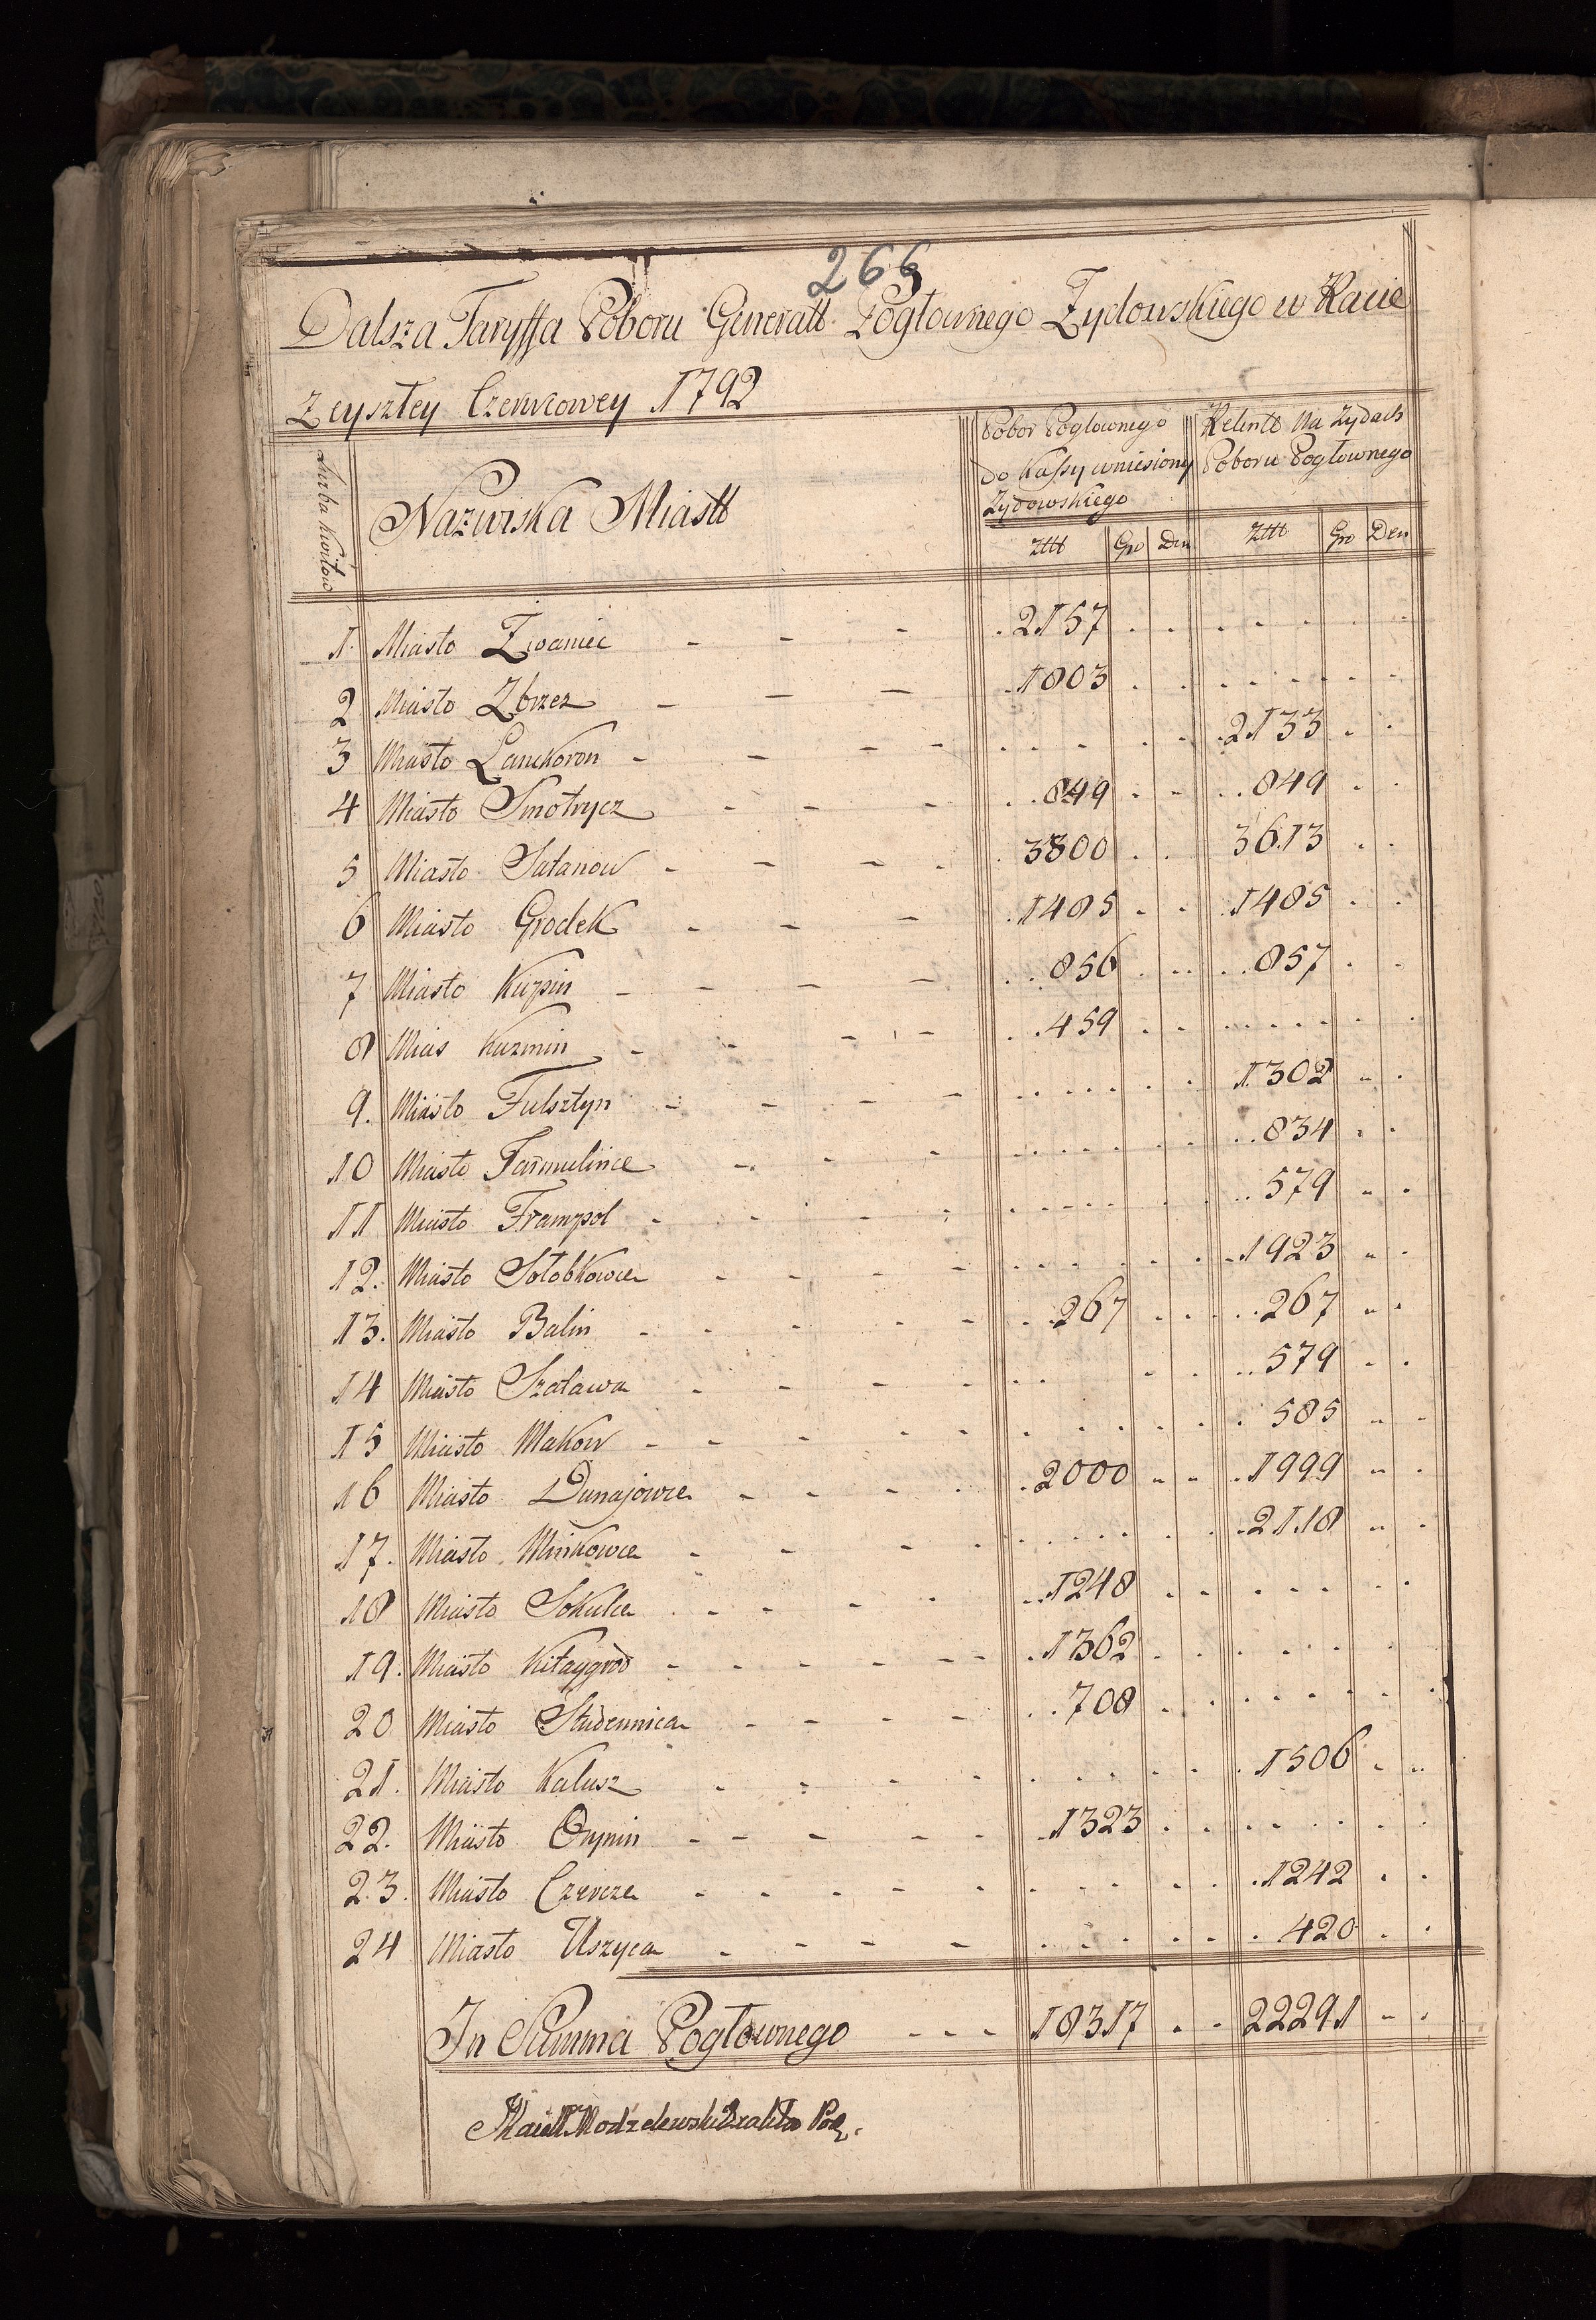 266
Dalsza Taryffa Poboru Generalł Pogłownego Zydowskiego w Racie
Zeyszłey Czerwcowey 1792
Liczba kwitow
Nazwiska Miastt
Pobor Pogłownego do Kassy wniesiony Zydowskiego
Retentt na Zydach Poboru Pogłownego
Złtt Gro Den Złtt Gro Den
1. Miasto Zwaniec - - - 2157 . . . . .
2 Miasto Zbrzez - - - 1803 . . . . .
3 Miasto Lanckoron - - - - . . . 2133 . .
4 Miasto Smotrycz - - - 849 . . 849 . .
5 Miasto Satanow - - - 3800 . . 3613 . .
6 Miasto Grodek - - - 1485 . . 1485 . .
7 Miasto Kupin - - - - 856 . . 857 . .
8 Mias Kuzmin - - - - 459 . . . . .
9. Miasto Fulsztyn - - - - . . . 1302 . .
10 Miasto Jarmulince - - - . . . 834 . .
11 Miasto Frampol - - - - . . . 579 . .
12. Miasto Sołobkowce - - - - . . . 1923 . .
13. Miasto Balin - - - - - 267 . . 267 . .
14 Miasto Szatawa - - - - . . . 579 . .
15 Miasto Makow - - - - - . . . 585 . .
16 Miasto Dunajowce - - - - 2000 . . 1999 . .
17. Miasto Minkowce - - - - . . . 2118 . .
18 Miasto Sokulec - - - - 1248 . . . . .
19. Miasto Kitaygrod - - - - - - 1362 . . . . .
20 Miasto Studennica - - - - 708 . . . . .
21. Miasto Kalusz - - - - . . . 1506 . .
22. Miasto Orynin - - - - - 1323 . . . . .
23. Miasto Czercze - - - - - . . . 1242 . .
24 Miasto Uszyca - - - - . . . 420 . .
In Summa Pogłownego - - - 18317 . . 22291 . .
Modzelewski